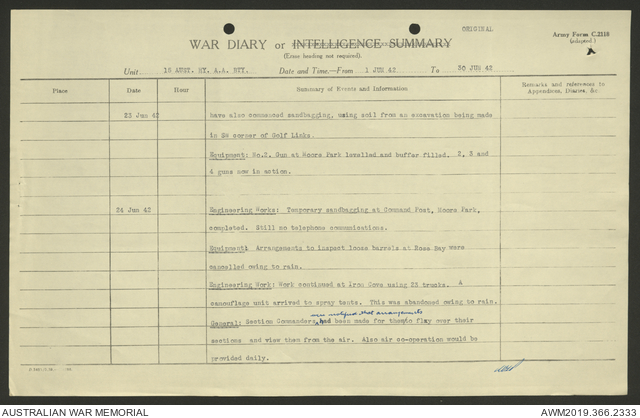 ORIGINAL
Army Form C.2118
(adapted)
WAR DIARY or INTELLIGENCE SUMMARY
(Erase heading not required).
Unit 18 AUST. HY. A.A. BTY. Date and Time.—From 1 JUN 42 To 30 JUN 42
Place Date Hour Summary of Events and Information Remarks and references to Appendices, Diaries, &c.
23 Jun 42 have also commenced sandbagging, using soil from an excavation being made
in SW corner of Golf Links.
Equipment: No.2. Gun at Moore Park levelled and buffer filled. 2, 3 and
4 guns now in action.
24 Jun 42 Engineering Works: Temporary sandbagging at Command Post, Moore Park,
completed. Still no telephone communications.
Equipment: Arrangements to inspect loose barrels at Rose Bay were
cancelled owing to rain.
Engineering Work: Work continued at Iron Cove using 23 trucks. A
camouflage unit arrived to spray tents. This was abandoned owing to rain.
were notified that arrangements
General: Section Commanders, had been made for them to fly over their
sections and view them from the air. Also air co-operation would be
provided daily.
AUSTRALIAN WAR MEMORIAL
AWM2019.366.2333